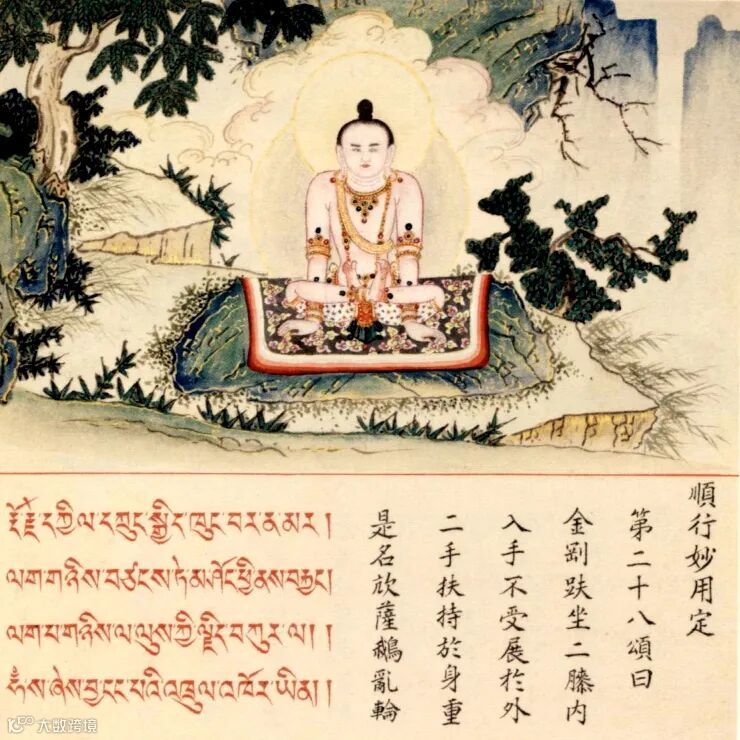 順行妙用定
第二十八頌曰
金剛趺坐二膝内
入手不受展於外
二手扶持於身重
是名薩鵝亂輪
རྡོ་རྗེ་དཀྱིལ་དཀྲུང་སྒྱིད་ཁུང་བར་ན་མར །
ལག་གཉིས་བཙངས་ཏེ་
ལག་པ་གཉིས་ལ་ལུས་ཀྱི་ལྗིད་བཀུར་ལ། །
ཧཾས་ཞེས་བྱ་ངང་པའི་འཁྲུལ་འཁོར་ཡིན། །
大数跨境